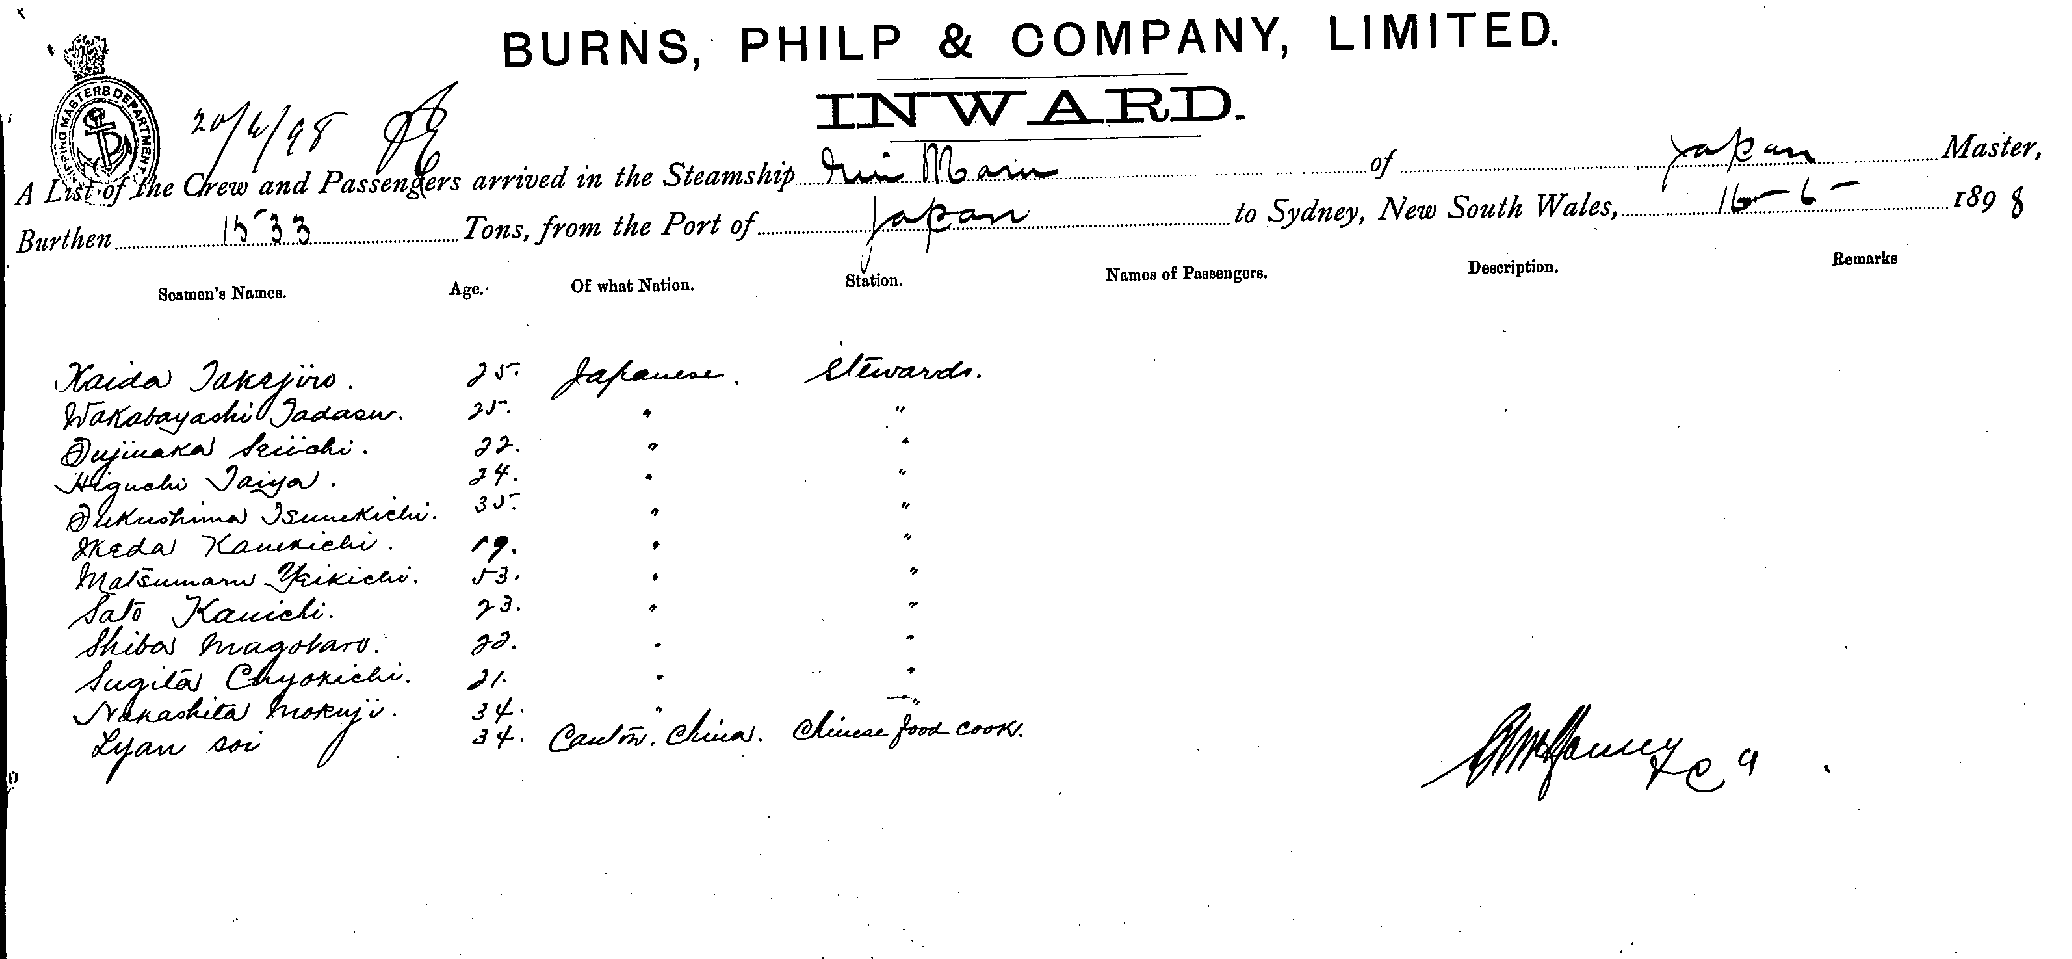 BURNS, PHILP & COMPANY, LIMITED.
INWARD.
SHIPPING MASTERS DEPARTMENT
20/6/98
A List of the Crew and Passengers arrived in the Steamship Maru of Japan Master,
Burthen 1533 Tons, from the Port of Japan to Sydney, New South Wales, 16-6- 1898
Seamen's Names. Age. Of what Nation. Station. Names of Passengers. Description. Remarks
Kaida Takejiro. 25. Japanese. Stewards.
Wakabayashi Tadasu. 25. " "
Fujinaka Seiichi. 22. " "
Higuchi Taiya. 24. " "
Fukushima Tsunekichi. 35. " "
Ikeda Kamekichi. 19. " "
Matsumaru Yeikichi. 53. " "
Sato Kanichi. 23. " "
Shiba Magotaro. 22. " "
Sugita Chyokichi. 21. " "
Nakashita Mokuji. 34. " "
Lyan soi 34. Canton. China. Chinese food cook.